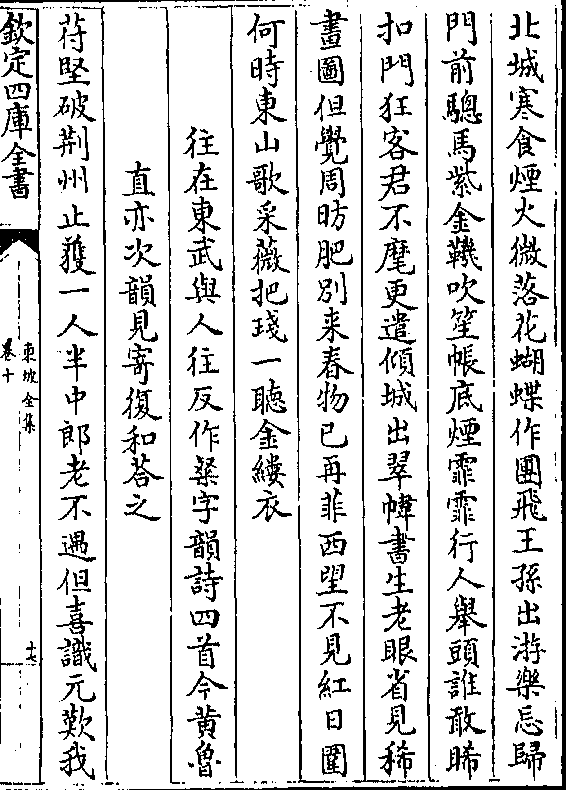 北城寒食煙火微落花蝴蝶作團飛王孫出游樂忘歸
門前驄馬紫金鞿吹笙帳底煙霏霏行人舉頭誰敢睎
扣門狂客君不麾更遣傾城出翠幃書生老眼省見稀
畫圖但覺周昉肥別来春物已再菲西望不見紅日圍
何時東山歌采薇把琖一聽金縷衣
往在東武與人往反作粲字韻詩四首今黄魯
直亦次韻見寄復和荅之
苻堅破荆州止獲一人半中郎老不遇但喜識元歎我
欽定四庫全書
東坡全集
卷十
十七